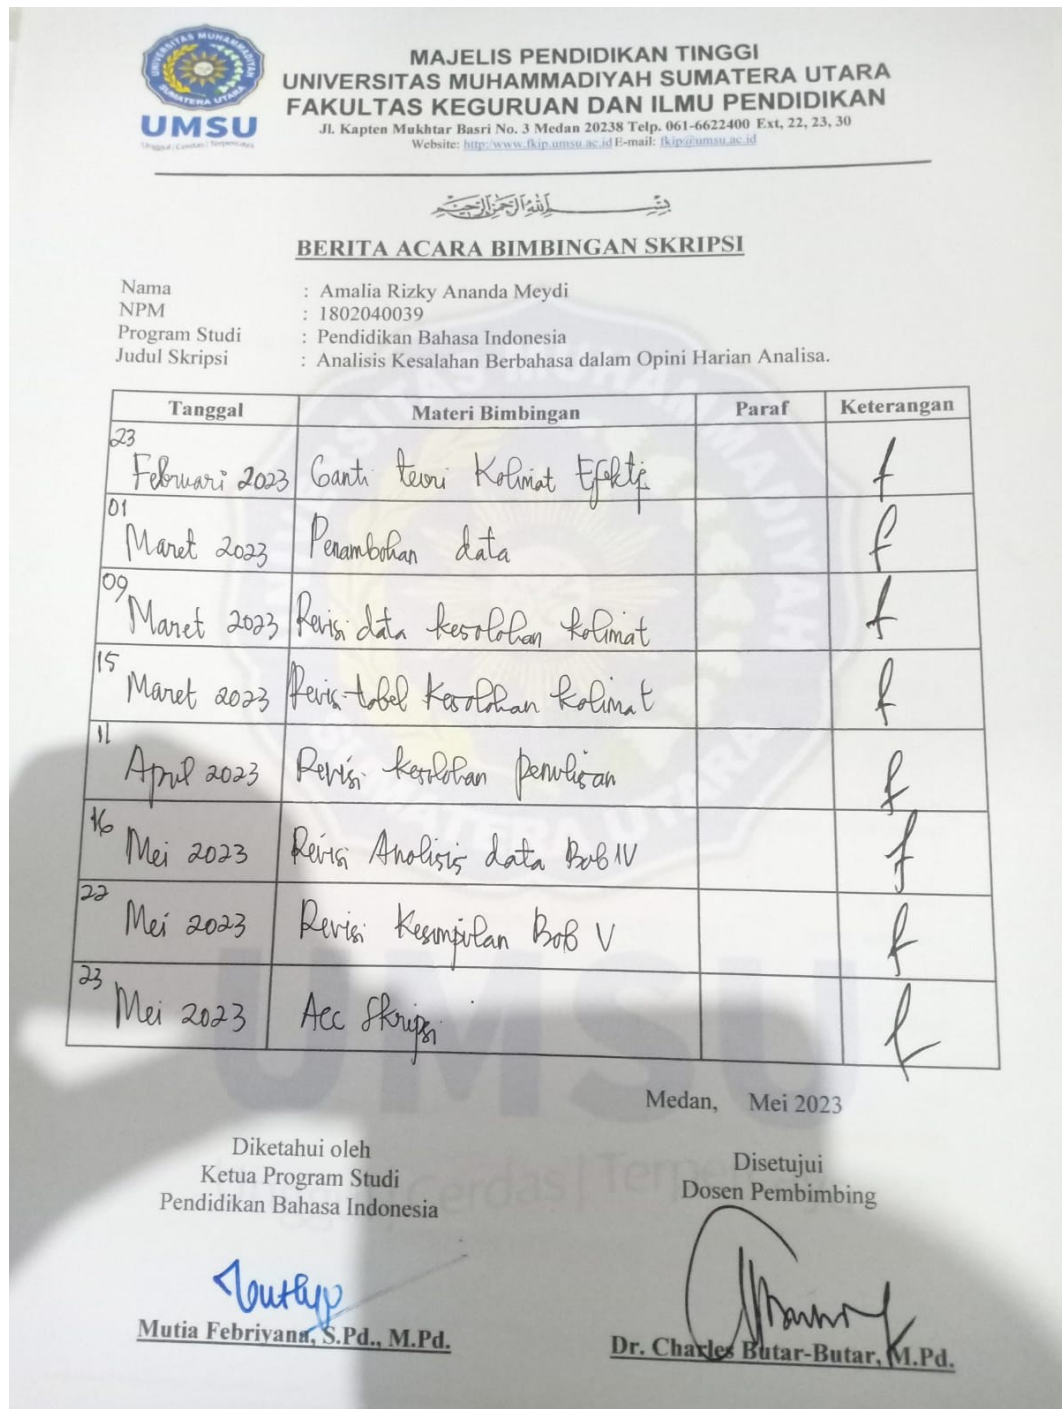 UNIVERSITAS MUHAMMADIYAH
SUMATERA UTARA
UMSU
Unggul | Cerdas | Terpercaya
MAJELIS PENDIDIKAN TINGGI
UNIVERSITAS MUHAMMADIYAH SUMATERA UTARA
FAKULTAS KEGURUAN DAN ILMU PENDIDIKAN
Jl. Kapten Mukhtar Basri No. 3 Medan 20238 Telp. 061-6622400 Ext, 22, 23, 30
Website: http:/www.fkip.umsu.ac.id E-mail: fkip@umsu.ac.id
بِسْمِ اللَّهِ الرَّحْمَنِ الرَّحِيمِ
BERITA ACARA BIMBINGAN SKRIPSI
Nama : Amalia Rizky Ananda Meydi
NPM : 1802040039
Program Studi : Pendidikan Bahasa Indonesia
Judul Skripsi : Analisis Kesalahan Berbahasa dalam Opini Harian Analisa.
Tanggal Materi Bimbingan Paraf Keterangan
23 Februari 2023 Ganti teori Kalimat Efektif
01 Maret 2023 Penambahan data
09 Maret 2023 Revisi data kesalahan kalimat
15 Maret 2023 Revisi tabel kesalahan kalimat
11 April 2023 Revisi kesalahan penulisan
16 Mei 2023 Revisi Analisis data Bab IV
22 Mei 2023 Revisi Kesimpulan Bab V
23 Mei 2023 Acc Skripsi
Medan, Mei 2023
Diketahui oleh
Ketua Program Studi
Pendidikan Bahasa Indonesia
Mutia Febriyana, S.Pd., M.Pd.
Disetujui
Dosen Pembimbing
Dr. Charles Butar-Butar, M.Pd.